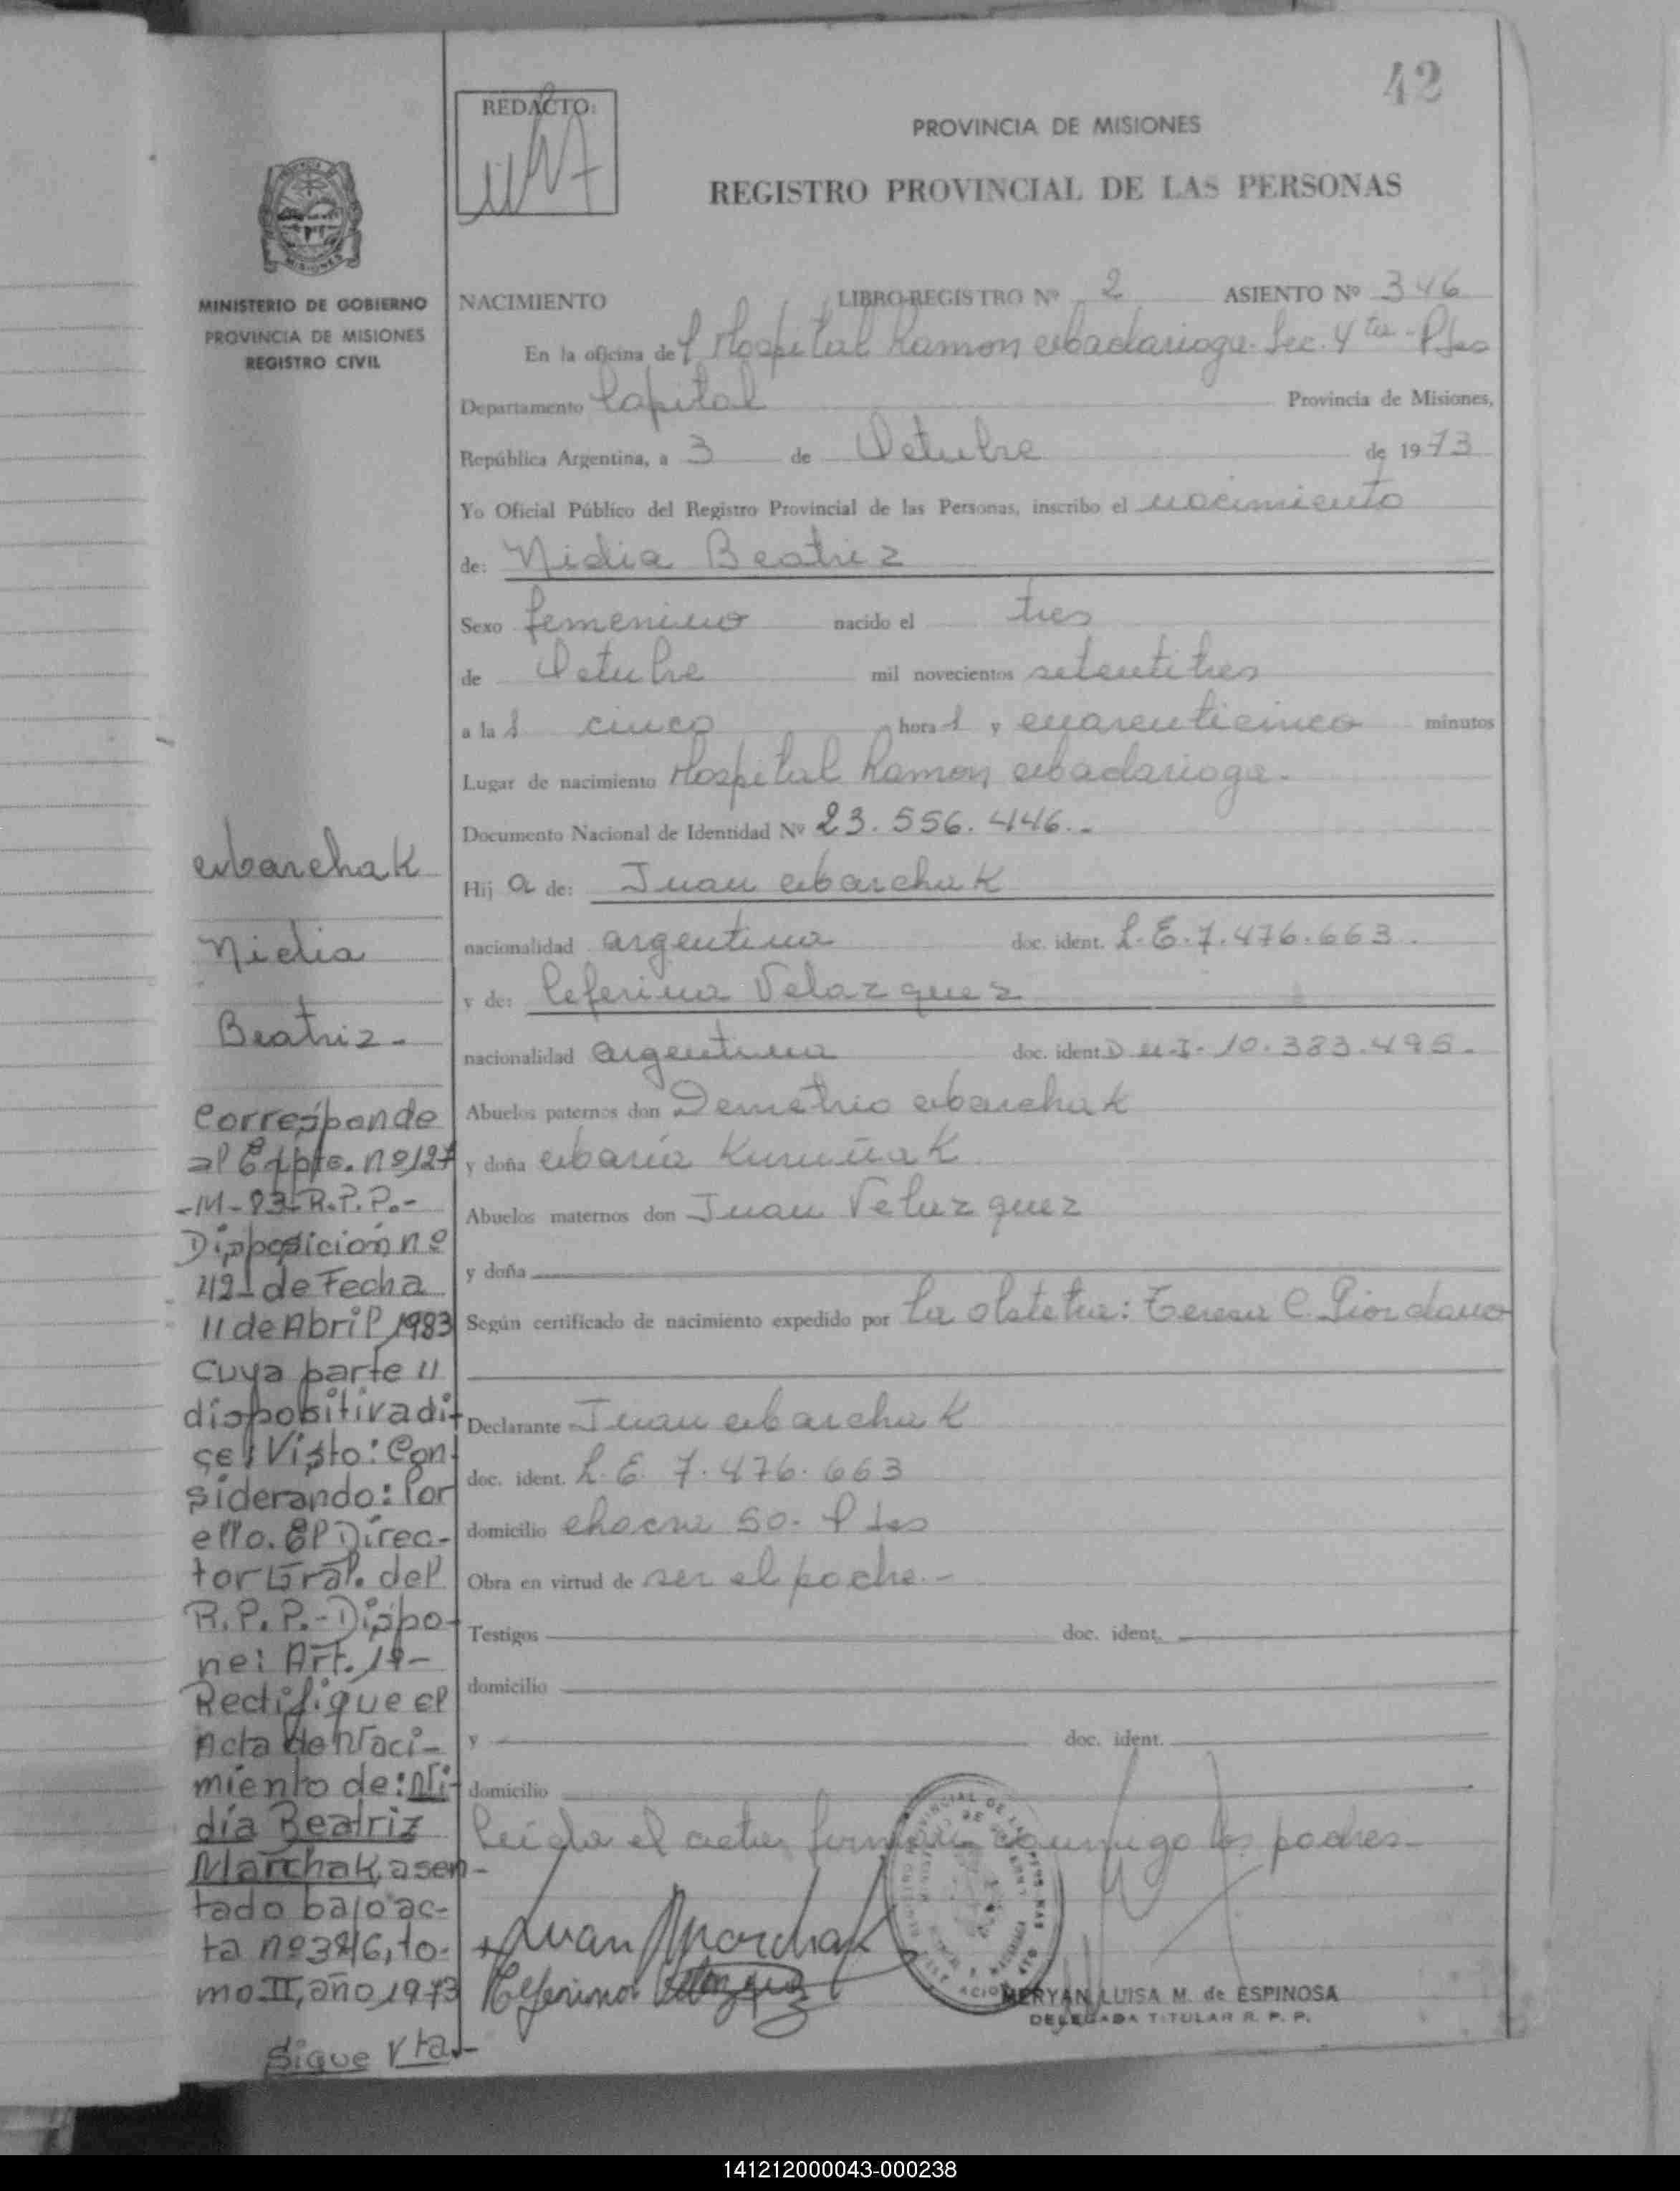 42
REDACTO:
PROVINCIA DE MISIONES
REGISTRO PROVINCIAL DE LAS PERSONAS
MISIONES
MINISTERIO DE GOBIERNO
PROVINCIA DE MISIONES
REGISTRO CIVIL
NACIMIENTO LIBRO-REGISTRO Nº 2 ASIENTO Nº 346
En la oficina del Hospital Ramon Madariaga. Sec. 4ta - Pdas
Departamento Capital Provincia de Misiones,
República Argentina, a 3 de Octubre de 1973
Yo Oficial Público del Registro Provincial de las Personas, inscribo el nacimiento
de: Nidia Beatriz
Sexo femenino nacido el tres
de Octubre mil novecientos setentitres
a las cinco horas y cuarenticinco minutos
Lugar de nacimiento Hospital Ramon Madariaga.
Documento Nacional de Identidad Nº 23.556.446.-
Hija de: Juan Marchak
nacionalidad argentina doc. ident. L.E. 7.476.663.
y de: Ceferina Velazquez
nacionalidad argentina doc. ident D.N.I. 10.383.495.
Abuelos paternos don Demetrio Marchak
y doña María
Abuelos maternos don Juan Velazquez
y doña
Según certificado de nacimiento expedido por La obstetra: Teresa C. Giordano
Declarante Juan Marchak
doc. ident. L.E. 7.476.663
domicilio chacra 50. Pdas
Obra en virtud de ser el padre.-
Testigos doc. ident.
domicilio
y doc. ident.
domicilio
Leída el acta, firman conmigo los padres-
Juan Marchak
Ceferina Velazquez
MERYAN LUISA M. de ESPINOSA
DELEGADA TITULAR R. P. P.
Marchak
Nidia
Beatriz-
Corresponde
al Expte. nº 127
-M-83-R.P.P.-
Disposición nº
421 de Fecha
11 de Abril 1983
cuya parte
dispositiva di-
ce: Visto: Con-
siderando: Por
ello. El Direc-
tor Gral. del
R.P.P.-Dispo-
ne: Art. 1º-
Rectifique el
Acta de Naci-
miento de: Ni-
dia Beatriz
Marchak, asen-
tado bajo ac-
ta nº 346, to-
mo II, año 1973
Sigue Vta.-
141212000043-000238